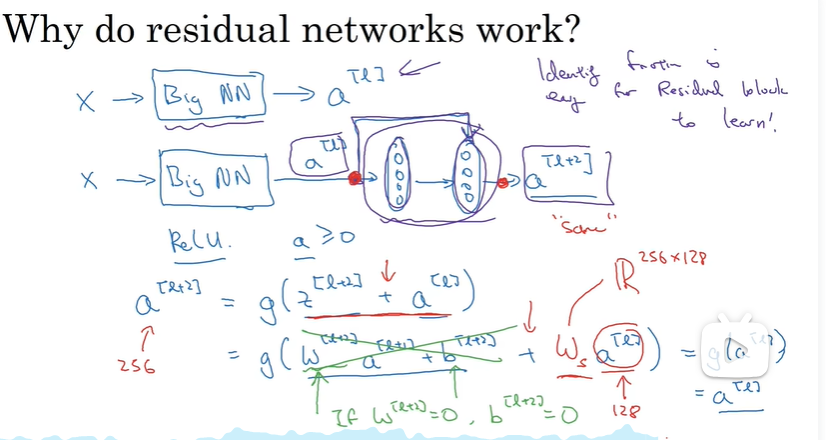 Why do residual networks work?
X → Big NN → a^[l]
Identity function is
easy for Residual block
to learn!
X → Big NN → a^[l] → → a^[l+2]
"same"
ReLU. a ≥ 0
a^[l+2] = g(z^[l+2] + a^[l])
ℝ^256×128
256
= g(W^[l+2] a^[l+1] + b^[l+2] + W_s a^[l]) = g(a^[l])
= a^[l]
If W^[l+2] = 0, b^[l+2] = 0
128